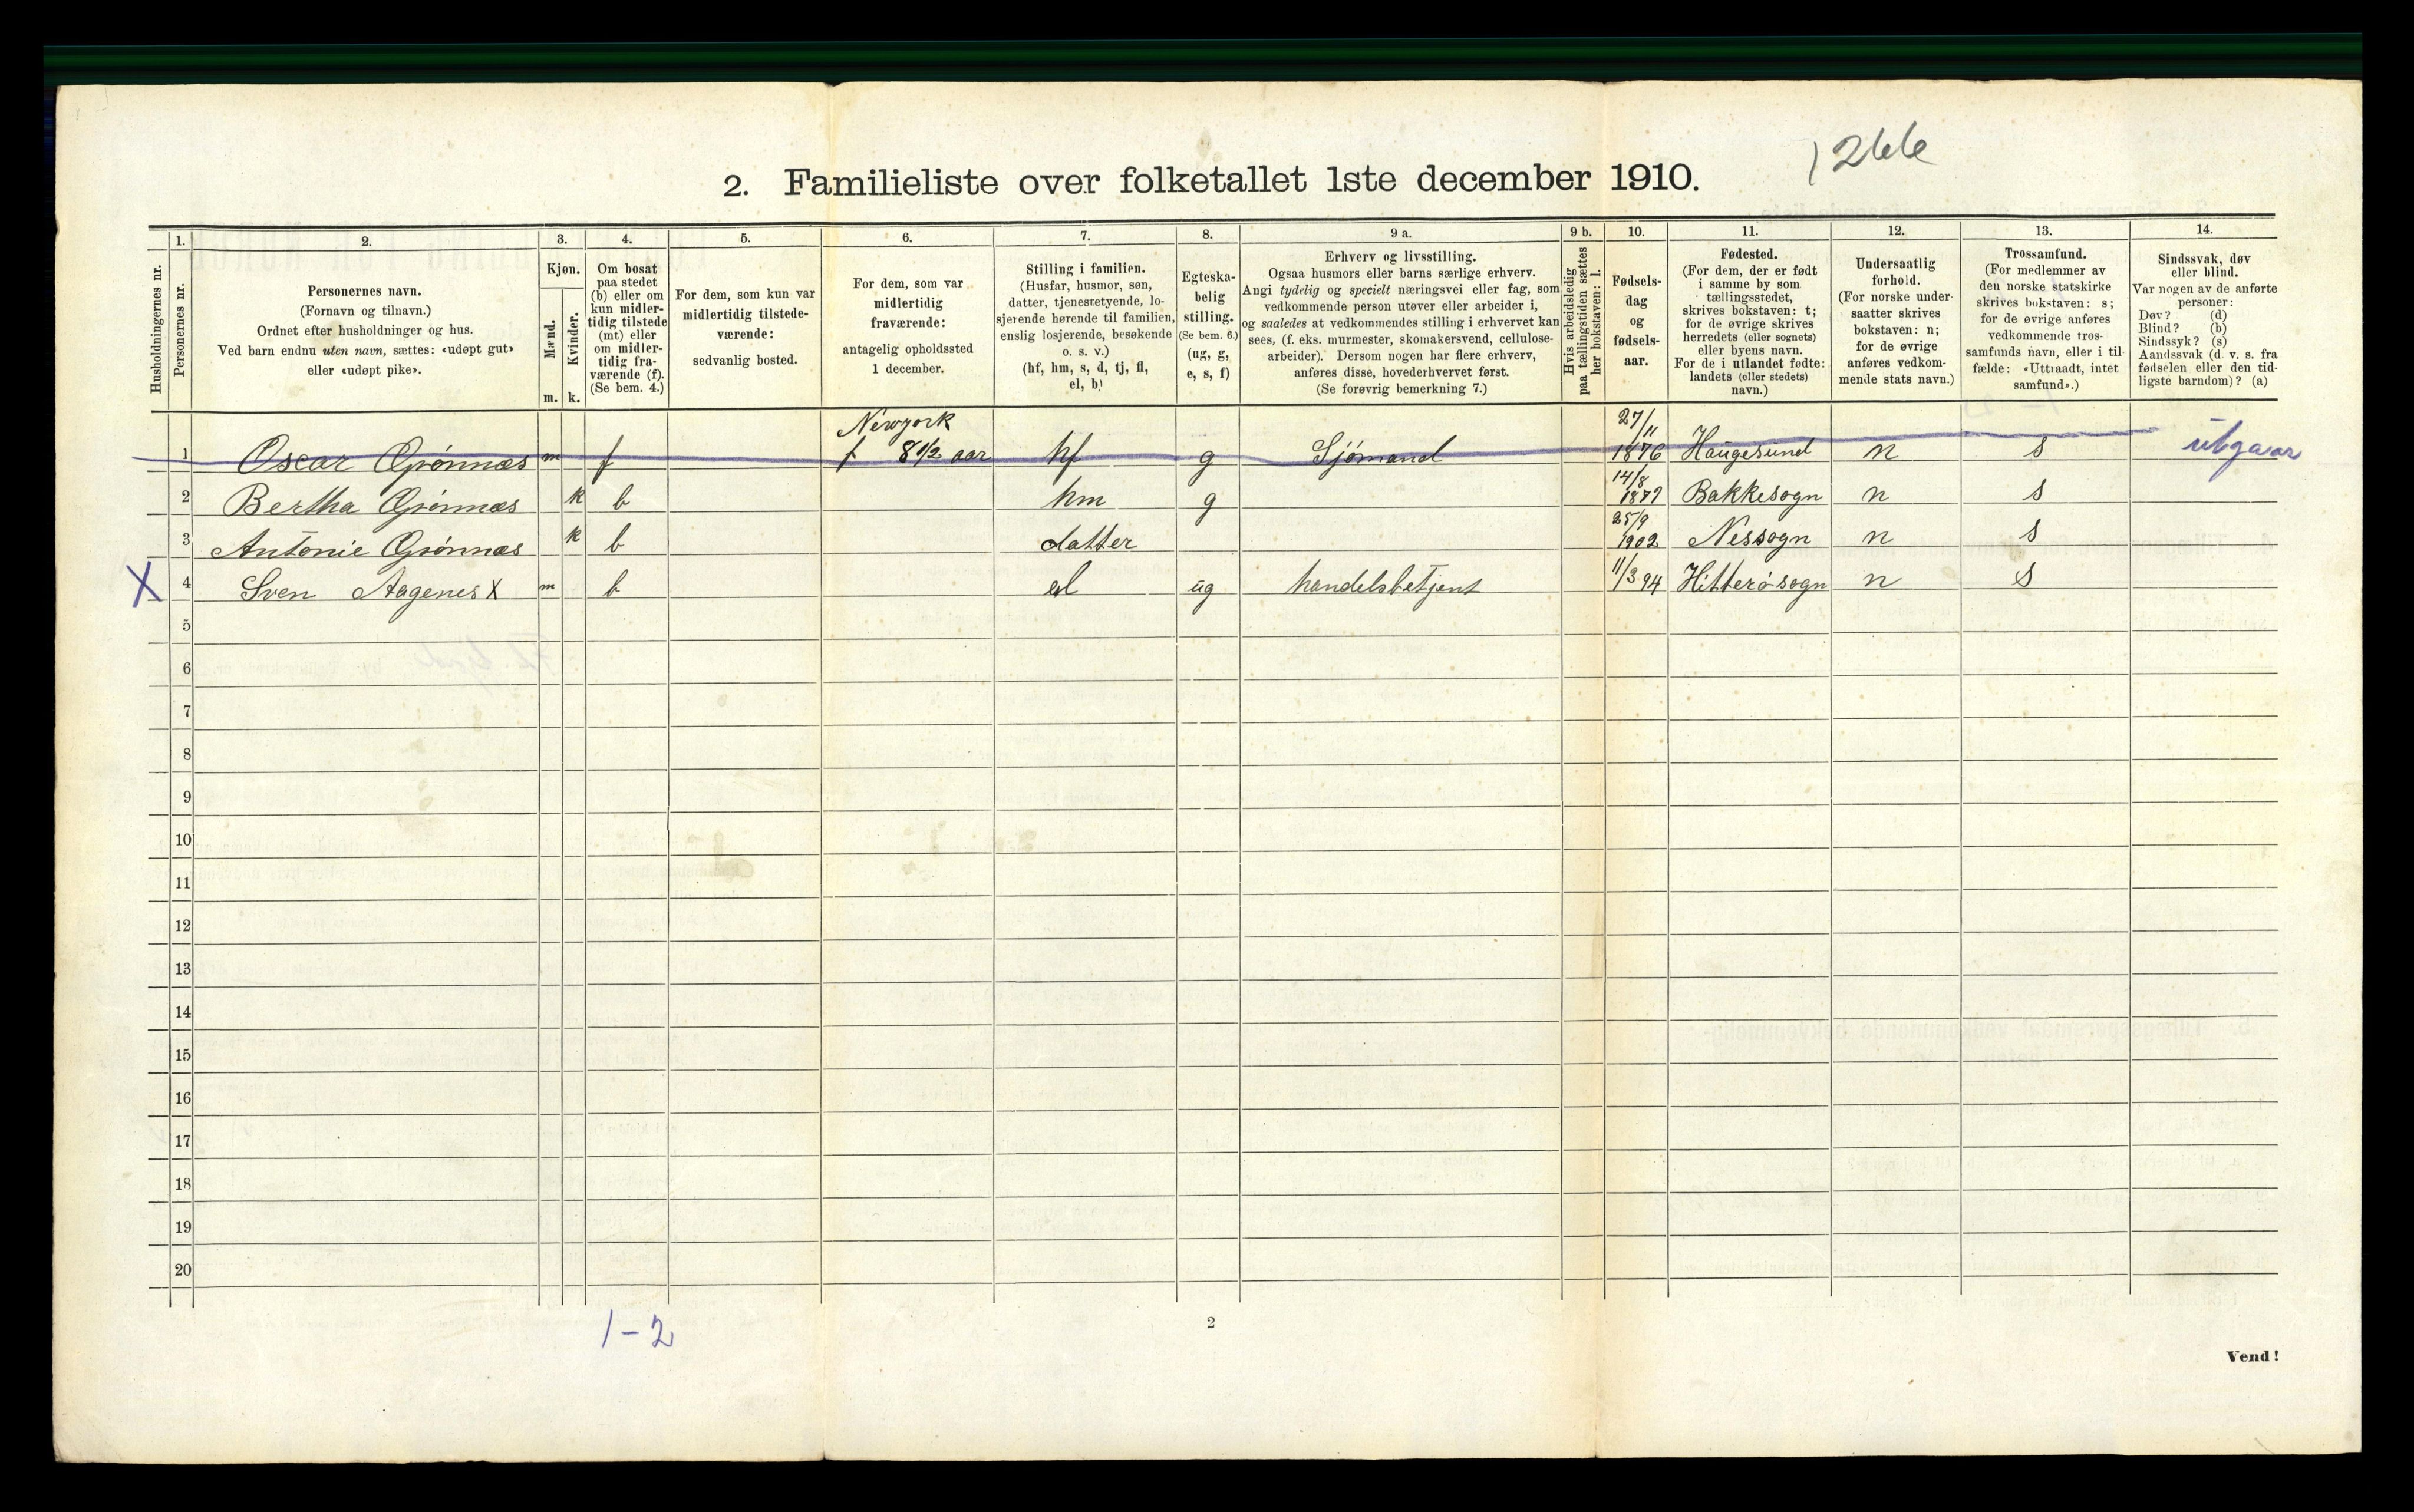 1266
2. Familieliste over folketallet 1ste december 1910.
Husholdningernes nr.
1.
Personernes nr.
2.
Personernes navn.
(Fornavn og tilnavn.)
Ordnet efter husholdninger og hus.
Ved barn endnu uten navn, sættes: «udøpt gut»
eller «udøpt pike».
3.
Kjøn.
Mænd.
Kvinder.
m. k.
4.
Om bosat
paa stedet
(b) eller om
kun midler-
tidig tilstede
(mt) eller
om midler-
tidig fra-
værende (f).
(Se bem. 4.)
5.
For dem, som kun var
midlertidig tilstede-
værende:
sedvanlig bosted.
6.
For dem, som var
midlertidig
fraværende:
antagelig opholdssted
1 december.
7.
Stilling i familien.
(Husfar, husmor, søn,
datter, tjenestetyende, lo-
sjerende hørende til familien,
enslig losjerende, besøkende
o. s. v.)
(hf, hm, s, d, tj, fl,
el, b)
8.
Egteska-
belig
stilling.
(Se bem. 6.)
(ug, g,
e, s, f)
9 a.
Erhverv og livsstilling.
Ogsaa husmors eller barns særlige erhverv.
Angi tydelig og specielt næringsvei eller fag, som
vedkommende person utøver eller arbeider i,
og saaledes at vedkommendes stilling i erhvervet kan
sees, (f. eks. murmester, skomakersvend, cellulose-
arbeider). Dersom nogen har flere erhverv,
anføres disse, hovederhvervet først.
(Se forøvrig bemerkning 7.)
9 b.
Hvis arbeidsledig
paa tællingstiden sættes
her bokstaven: l.
10.
Fødsels-
dag
og
fødsels-
aar.
11.
Fødested.
(For dem, der er født
i samme by som
tællingsstedet,
skrives bokstaven: t;
for de øvrige skrives
herredets (eller sognets)
eller byens navn.
For de i utlandet fødte:
landets (eller stedets)
navn.)
12.
Undersaatlig
forhold.
(For norske under-
saatter skrives
bokstaven: n;
for de øvrige
anføres vedkom-
mende stats navn.)
13.
Trossamfund.
(For medlemmer av
den norske statskirke
skrives bokstaven: s;
for de øvrige anføres
vedkommende tros-
samfunds navn, eller i til-
fælde: «Uttraadt, intet
samfund».)
14.
Sindssvak, døv
eller blind.
Var nogen av de anførte
personer:
Døv? (d)
Blind? (b)
Sindssyk? (s)
Aandssvak (d. v. s. fra
fødselen eller den tid-
ligste barndom)? (a)
Newyork 27/11
1 Oscar Grönnæs m f f 8 1/2 aar hf g Sjömand 1876 Haugesund n s utgaar
14/8
2 Bertha Grönnæs k b hm g 1877 Bakkesogn n s
25/9
3 Antonie Grönnæs k b datter 1902 Nessogn n s
X 4 Sven Aagenes X m b el ug handelsbetjent 11/3 94 Hitterö sogn n s
5
6
7
8
9
10
11
12
13
14
15
16
17
18
19
20
1-2
2
Vend!